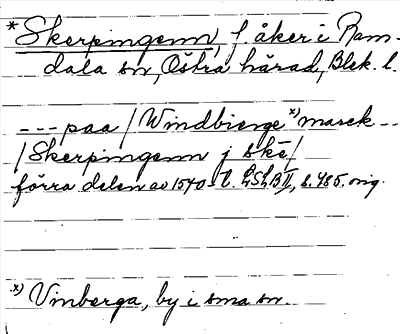 *Skerpingenn, f. åker i Ram-
dala sn, Östra härad, Blek. l.
--- paa /Windbierge x) marck --
/Skerpingenn j skē/
förra delen av 1540-t. LSLB II, s. 485. orig.
x) Vinberga, by i sma sn.